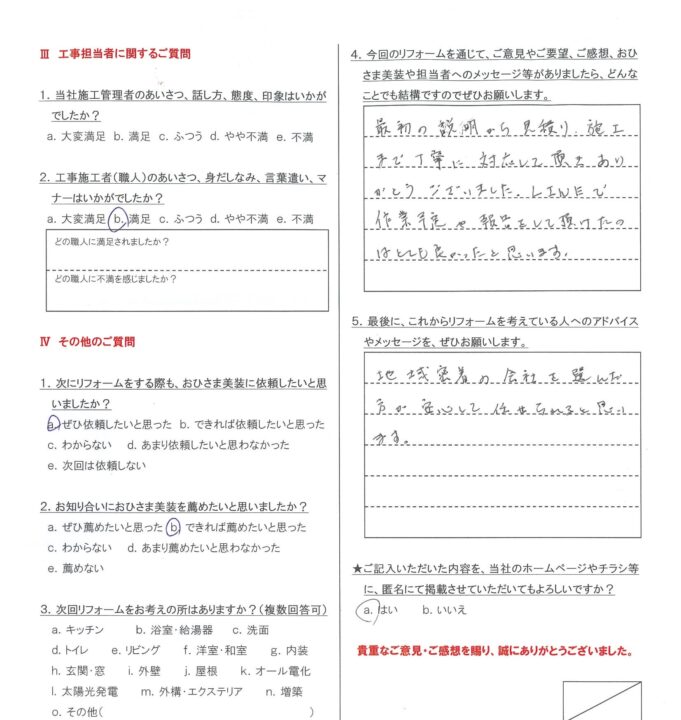 Ⅲ 工事担当者に関するご質問
1. 当社施工管理者のあいさつ、話し方、態度、印象はいかが
でしたか？
a. 大変満足 b. 満足 c. ふつう d. やや不満 e. 不満
2. 工事施工者(職人)のあいさつ、身だしなみ、言葉遣い、マ
ナーはいかがでしたか？
a. 大変満足 b. 満足 c. ふつう d. やや不満 e. 不満
どの職人に満足されましたか？
どの職人に不満を感じましたか？
Ⅳ その他のご質問
1. 次にリフォームをする際も、おひさま美装に依頼したいと思
いましたか？
a. ぜひ依頼したいと思った b. できれば依頼したいと思った
c. わからない d. あまり依頼したいと思わなかった
e. 次回は依頼しない
2. お知り合いにおひさま美装を薦めたいと思いましたか？
a. ぜひ薦めたいと思った b. できれば薦めたいと思った
c. わからない d. あまり薦めたいと思わなかった
e. 薦めない
3. 次回リフォームをお考えの所はありますか？(複数回答可)
a. キッチン b. 浴室・給湯器 c. 洗面
d. トイレ e. リビング f. 洋室・和室 g. 内装
h. 玄関・窓 i. 外壁 j. 屋根 k. オール電化
l. 太陽光発電 m. 外構・エクステリア n. 増築
o. その他( )
4. 今回のリフォームを通じて、ご意見やご要望、ご感想、おひ
さま美装や担当者へのメッセージ等がありましたら、どんな
ことでも結構ですのでぜひお願いします。
最初の説明から見積り、施工
まで丁寧に対応して頂きあり
がとうございました。LINEで
作業予定や報告をして頂けたの
はとても良かったと思います。
5. 最後に、これからリフォームを考えている人へのアドバイス
やメッセージを、ぜひお願いします。
地域密着の会社を選んだ
方が安心して任せられると思い
ます。
★ご記入いただいた内容を、当社のホームページやチラシ等
に、匿名にて掲載させていただいてもよろしいですか？
a. はい b. いいえ
貴重なご意見・ご感想を賜り、誠にありがとうございました。